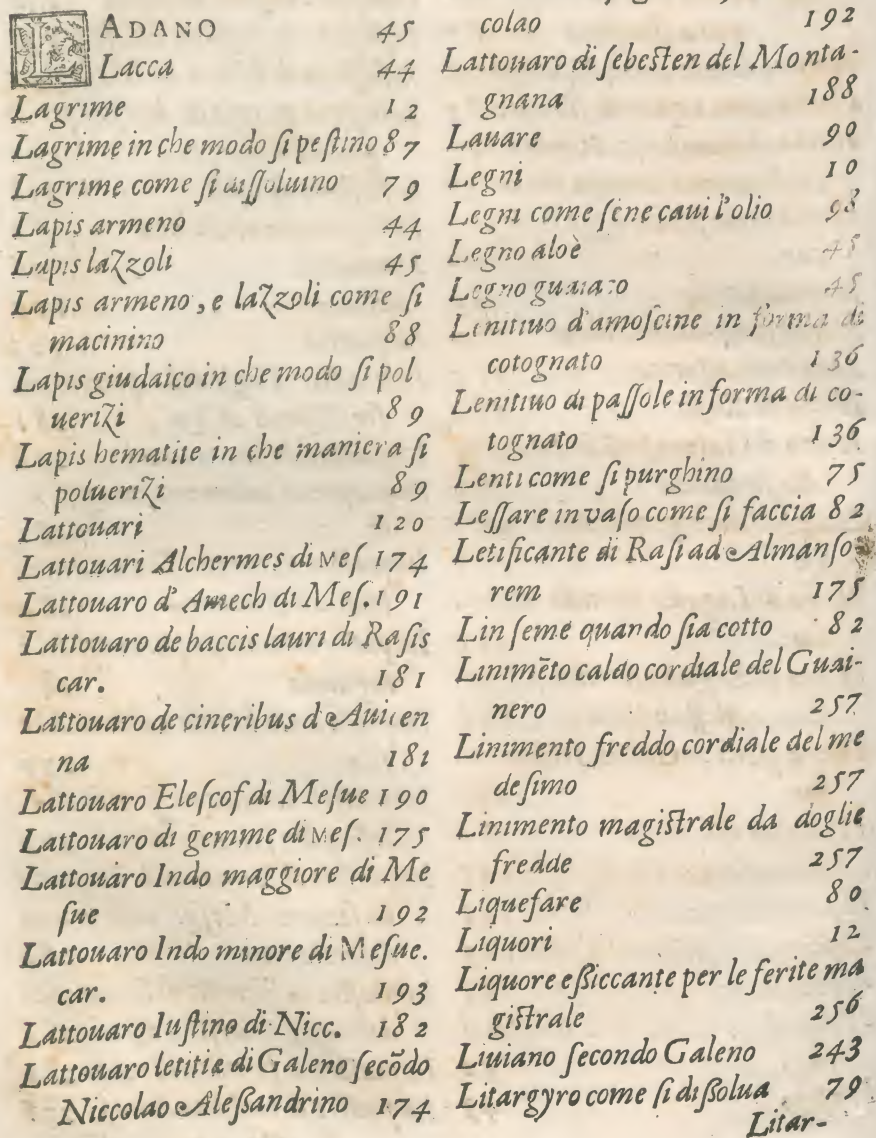 LADANO 45
Lacca 44
Lagrime 12
Lagrime in che modo si pestino 87
Lagrime come si dissoluino 79
Lapis armeno 44
Lapis lazzoli 45
Lapis armeno, e lazzoli come si
macinino 88
Lapis giudaico in che modo si pol
uerizi 89
Lapis hematite in che maniera si
poluerizi 89
Lattouari 120
Lattouari Alchermes di Mes 174
Lattouaro d'Amech di Mes. 191
Lattouaro de baccis lauri di Rasis
car. 181
Lattouaro de cineribus d'Auicen
na 181
Lattouaro Elescof di Mesue 190
Lattouaro di gemme di Mes. 175
Lattouaro Indo maggiore di Me
sue 192
Lattouaro Indo minore di Mesue.
car. 193
Lattouaro Iustino di Nicc. 182
Lattouaro letitiæ di Galeno secōdo
Niccolao Alessandrino 174
colao 192
Lattouaro di sebesten del Monta-
gnana 188
Lauare 90
Legni 10
Legni come sene caui l'olio 98
Legno aloè 45
Legno guaiaco 45
Lenitiuo d'amoscine in forma di
cotognato 136
Lenitiuo di passole in forma di co-
tognato 136
Lenti come si purghino 75
Lessare in vaso come si faccia 82
Letificante di Rasi ad Almanso-
rem 175
Lin seme quando sia cotto 82
Linimēto caldo cordiale del Guai-
nero 257
Linimento freddo cordiale del me
desimo 257
Linimento magistrale da doglie
fredde 257
Liquefare 80
Liquori 12
Liquore essiccante per le ferite ma
gistrale 256
Liuiano secondo Galeno 243
Litargyro come si dissolua 79
Litar-